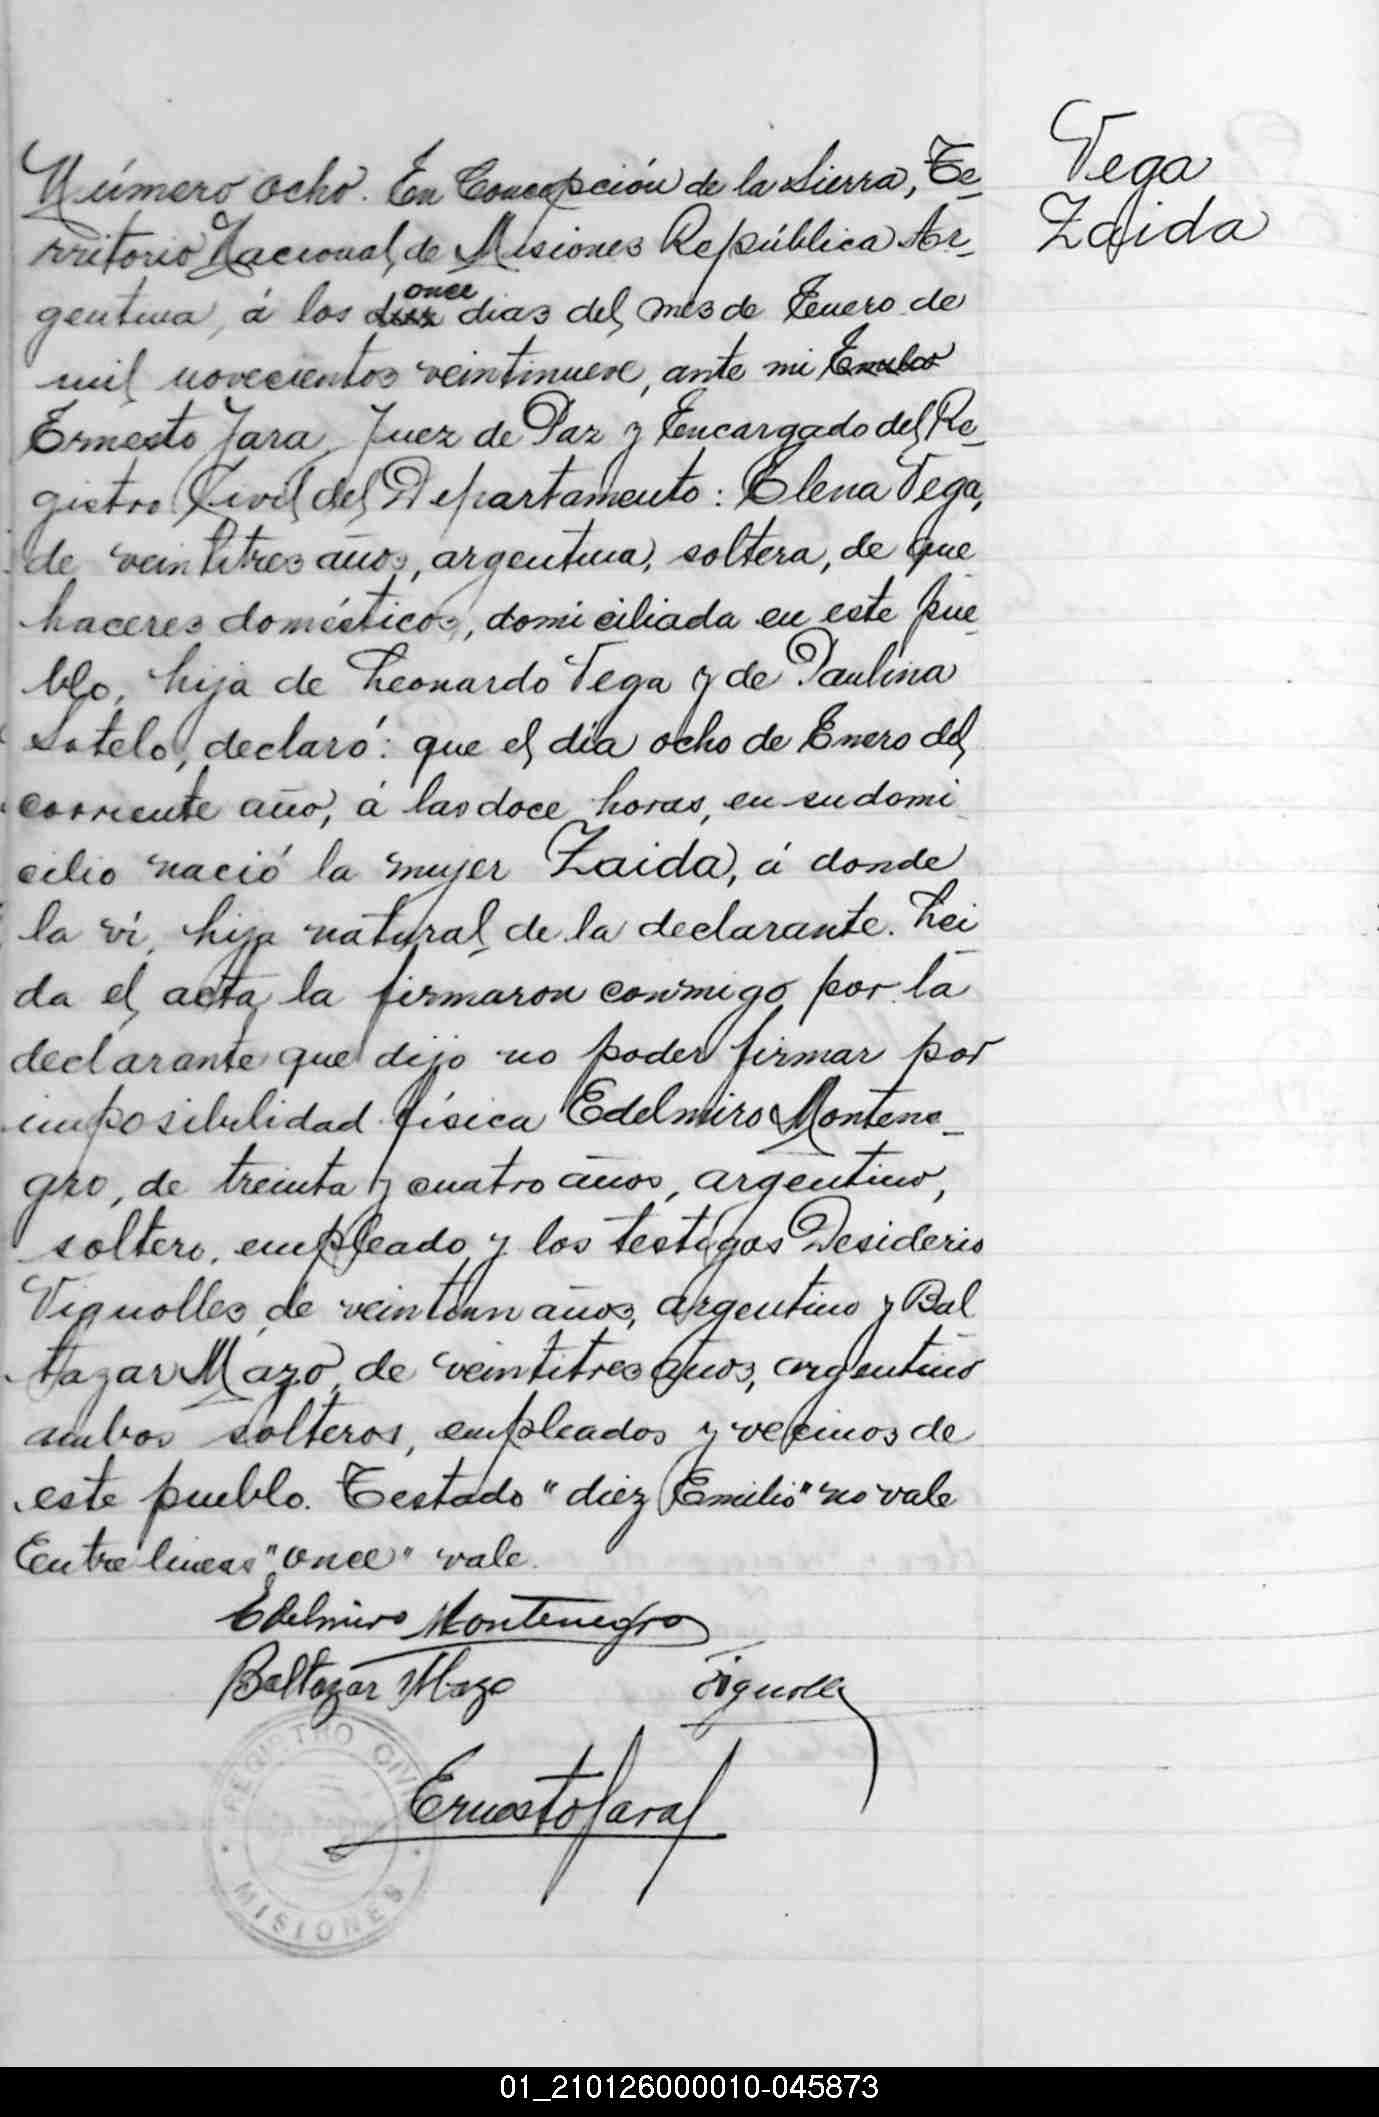 Vega
Zaida
Número ocho. En Concepción de la Sierra, Te-
rritorio Nacional de Misiones República Ar-
gentina, á los diez once dias del mes de Enero de
mil novecientos veintinueve, ante mi Emilio
Ernesto Jara, Juez de Paz y Encargado del Re-
gistro Civil del Departamento: Elena Vega,
de veintitres años, argentina, soltera, de que
haceres domésticos, domiciliada en este pue-
blo, hija de Leonardo Vega y de Paulina
Sotelo, declaró: que el día ocho de Enero del
corriente año, á las doce horas, en su domi
cilio nació la mujer Zaida, á donde
la ví, hija natural de la declarante. Lei
da el acta la firmaron conmigo por la
declarante que dijo no poder firmar por
imposibilidad física Edelmiro Montene-
gro, de treinta y cuatro años, argentino,
soltero, empleado y los testigos Desiderio
Vignolles de veintiun años, argentino y Bal
tazar Mazo de veintitres años, argentino
ambos solteros, empleados y vecinos de
este pueblo. Testado "diez Emilio" no vale
Entre lineas "once" vale.
Edelmiro Montenegro
Baltazar Mazo Vignolles
Ernesto Jara
REGISTRO CIVIL
MISIONES
01_210126000010-045873